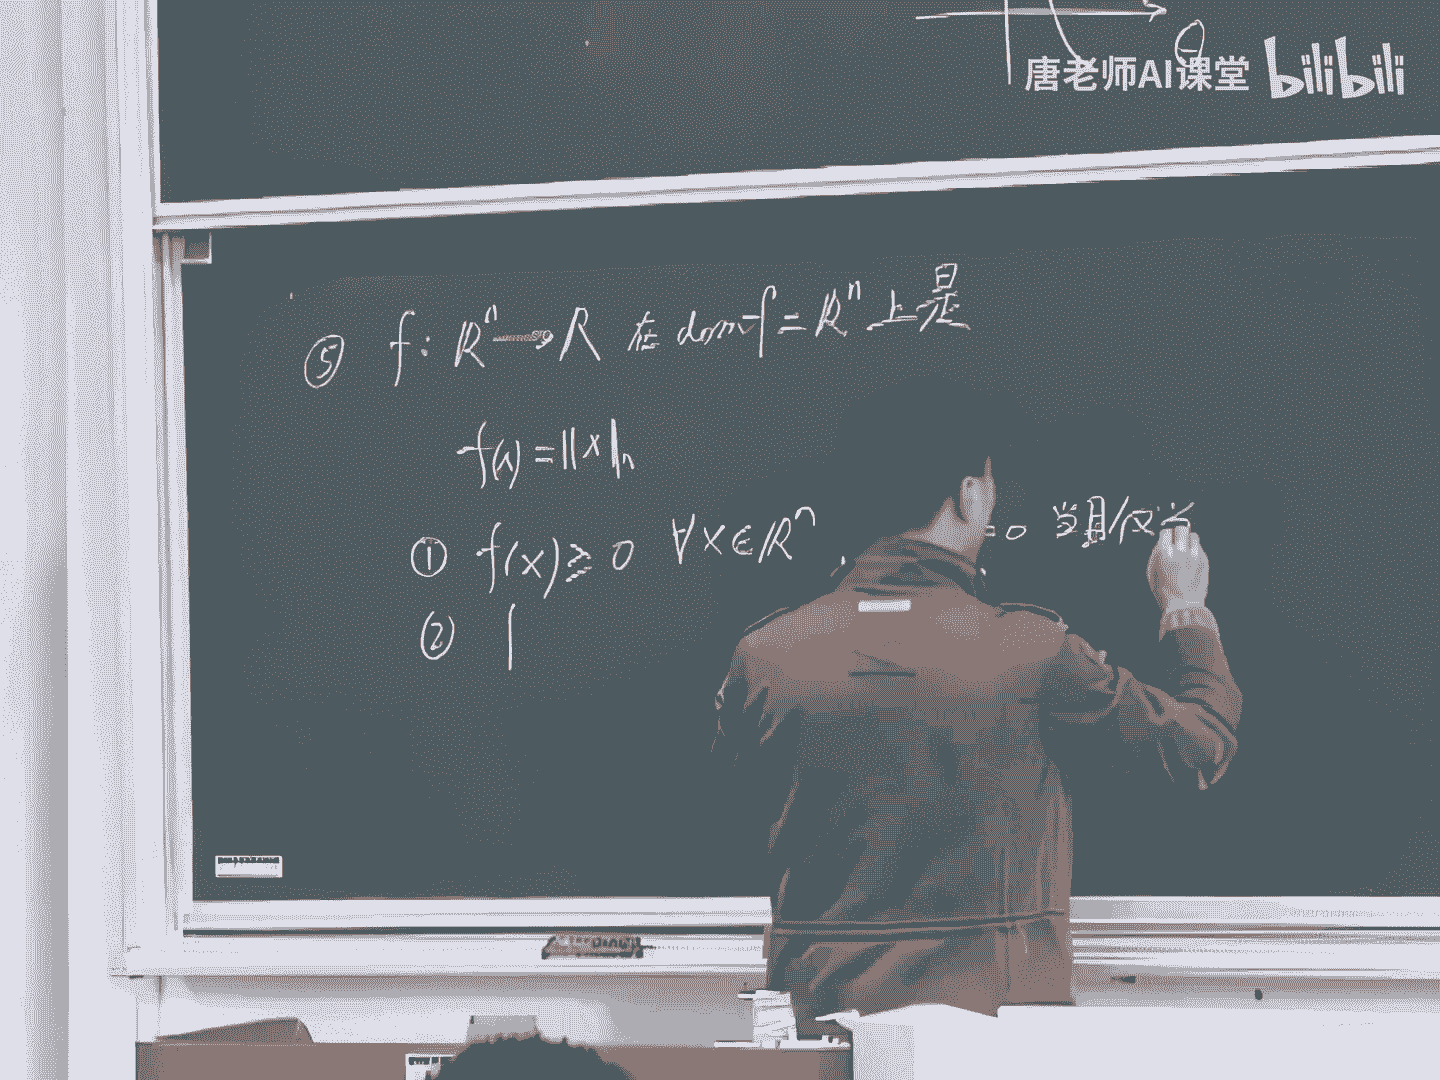 θ
唐老师AI课堂 bilibili
⑤ f: Rⁿ → R 在 domf = Rⁿ 上是
f(x) = ||x|ₙ
① f(x) ≥ 0 ∀x∈Rⁿ, =0 当且仅当
②